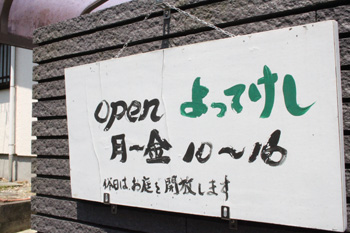 open よってけし
月〜金 10〜16
休日は、お庭を開放します